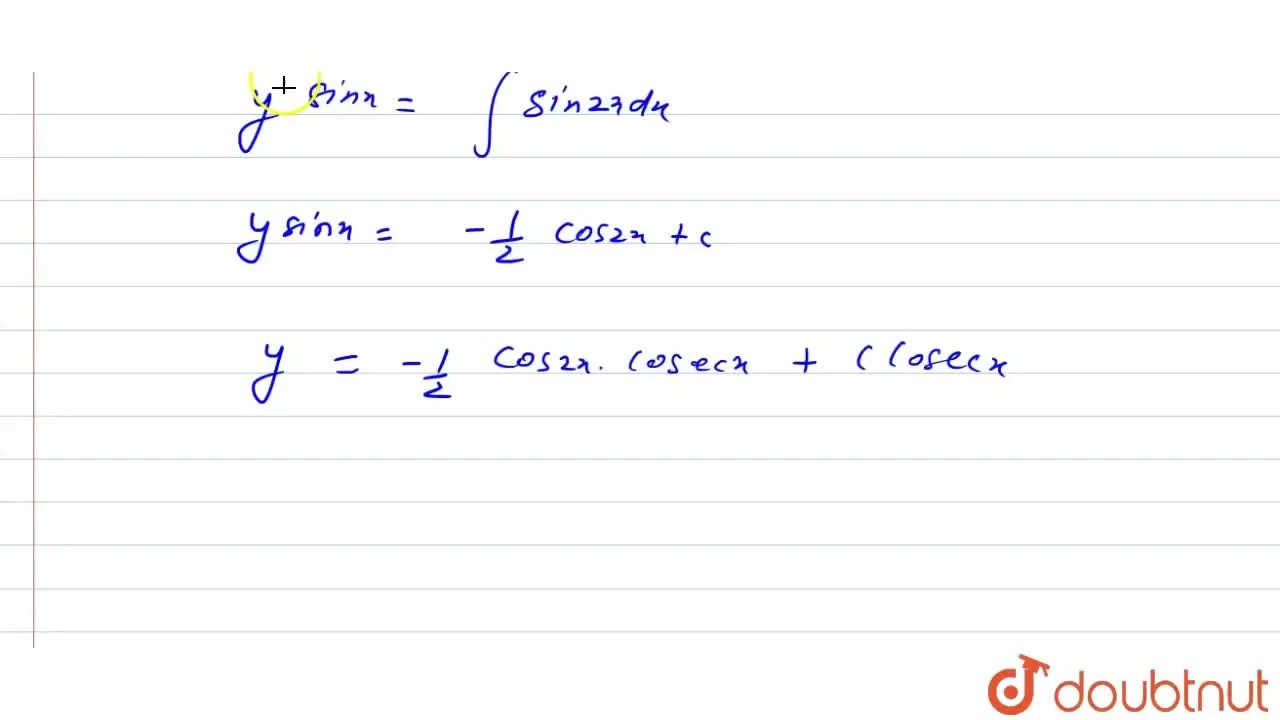 y sinx = ∫ sin2xdx
y sinx = -1/2 cos2x + c
y = -1/2 cos2x. cosecx + c cosecx
doubtnut